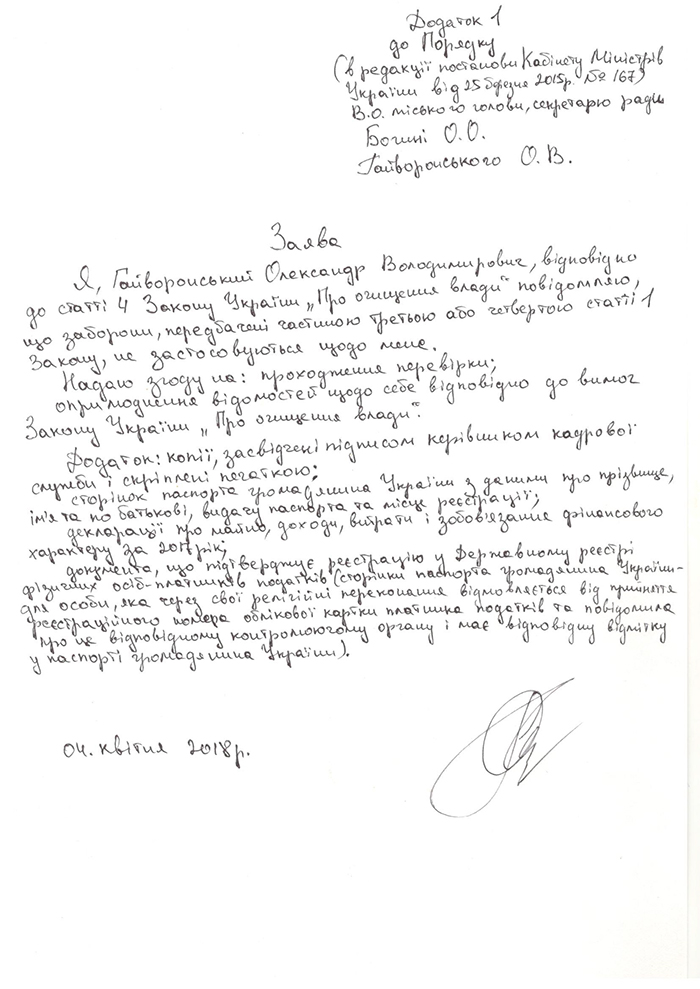 Додаток 1
до Порядку
(в редакції постанови Кабінету Міністрів
України від 25 березня 2015р. № 167)
В.О. міського голови, секретарю ради
Богині О.О.
Гайворонського О.В.
Заява
Я, Гайворонський Олександр Володимирович, відповідно
до статті 4 Закону України „Про очищення влади" повідомляю,
що заборони, передбачені частиною третьою або четвертою статті 1
Закону, не застосовуються щодо мене.
Надаю згоду на: проходження перевірки;
оприлюднення відомостей щодо себе відповідно до вимог
Закону України „Про очищення влади".
Додаток: копії, засвідчені підписом керівником кадрової
служби і скріплені печаткою;
сторінок паспорта громадянина України з даними про прізвище,
ім'я та по батькові, видачу паспорта та місце реєстрації;
декларації про майно, доходи, витрати і зобов'язання фінансового
характеру за 2017 рік;
документа, що підтверджує реєстрацію у Державному реєстрі
фізичних осіб-платників податків (сторінки паспорта громадянина України-
для особи, яка через свої релігійні переконання відмовляється від прийняття
реєстраційного номера облікової картки платника податків та повідомила
про це відповідному контролюючому органу і має відповідну відмітку
у паспорті громадянина України).
04. квітня 2018р.